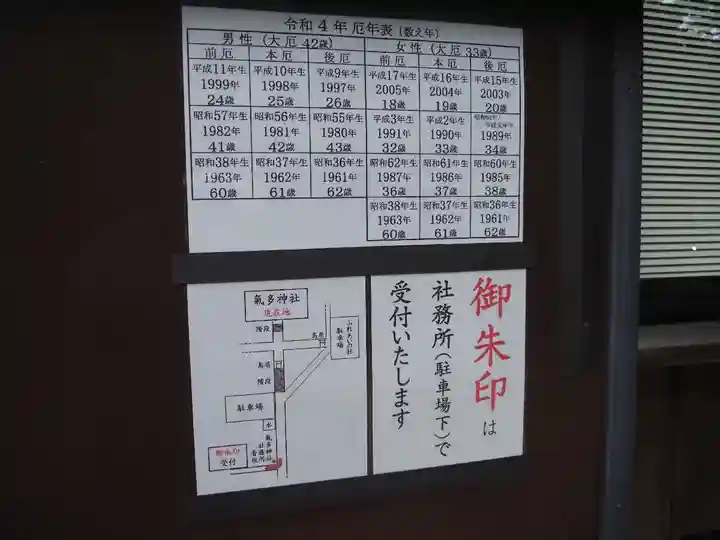 令和4年 厄年表（数え年）
男性（大厄 42歳） 女性（大厄 33歳）
前厄 本厄 後厄 前厄 本厄 後厄
平成11年生 平成10年生 平成9年生 平成17年生 平成16年生 平成15年生
1999年 1998年 1997年 2005年 2004年 2003年
24歳 25歳 26歳 18歳 19歳 20歳
昭和57年生 昭和56年生 昭和55年生 平成3年生 平成2年生
1982年 1981年 1980年 1991年 1990年 1989年
41歳 42歳 43歳 32歳 33歳 34歳
昭和38年生 昭和37年生 昭和36年生 昭和62年生 昭和61年生 昭和60年生
1963年 1962年 1961年 1987年 1986年 1985年
60歳 61歳 62歳 36歳 37歳 38歳
昭和38年生 昭和37年生 昭和36年生
1963年 1962年 1961年
60歳 61歳 62歳
氣多神社
現在地
階段
鳥居
ふれあいの社
駐車場
鳥居
階段
駐車場
木
氣多神社
社務所
看板
御朱印
受付
御朱印は
社務所（駐車場下）で
受付いたします